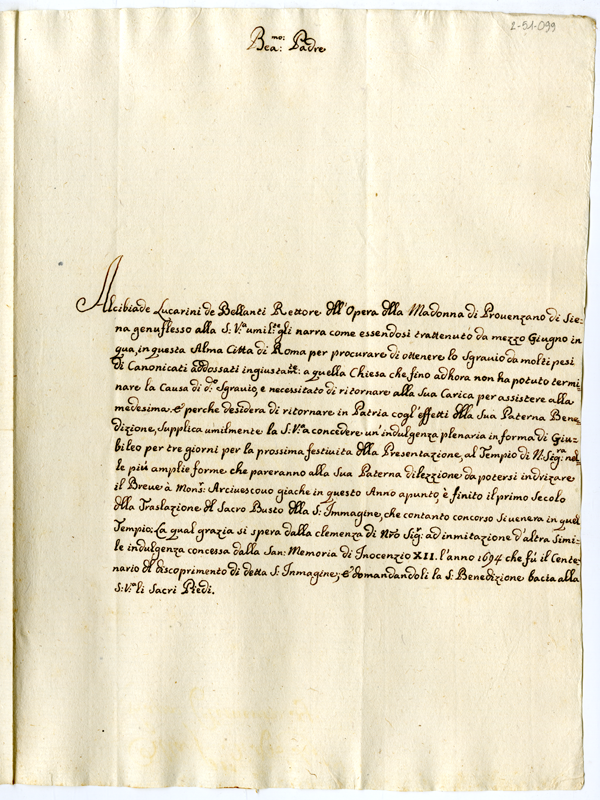 2-51-099
Bea:mo: Padre
Alcibiade Lucarini de Bellanti Rettore dell'Opera della Madonna di Prouenzano di Sie=
na genuflesso alla S: V:ra umil:te gli narra come essendosi trattenuto da mezzo Giugno in
qua, in questa Alma Citta di Roma per procurare di ottenere lo Sgrauio da molti pesi
di Canonicati addossati ingiustate: a quella Chiesa che fino adhora non ha potuto termi=
nare la Causa di d:o Sgrauio, e necessitato di ritornare alla Sua Carica per assistere alla
medesima. E perche desidera di ritornare in Patria cogl'effetti della Sua Paterna Bene=
dizione, supplica umilmente la S: V:ra a concedere un'indulgenza plenaria in forma di Giu=
bileo per tre giorni per la prossima festiuita della Presentazione, al Tempio di N: Sig:ra nel=
le più amplie forme che pareranno alla Sua Paterna dilezzione da potersi indrizare
il Breue à Mons:r Arciuescouo giache in questo Anno apunto è finito il primo Secolo
della Traslazione del Sacro Busto della S: Immagine, che contanto concorso si uenera in quel
Tempio. La qual grazia si spera dalla clemenza di Nro Sig: ad inmitazione d'altra Simi=
le indulgenza concessa dalla San: Memoria di Inocenzio XII. l'anno 1694 che fú il Cente=
nario del discoprimento di detta S: Inmagine; e domandandoli la S: Benedizione bacia alla
S: V:ra li Sacri Piedi.